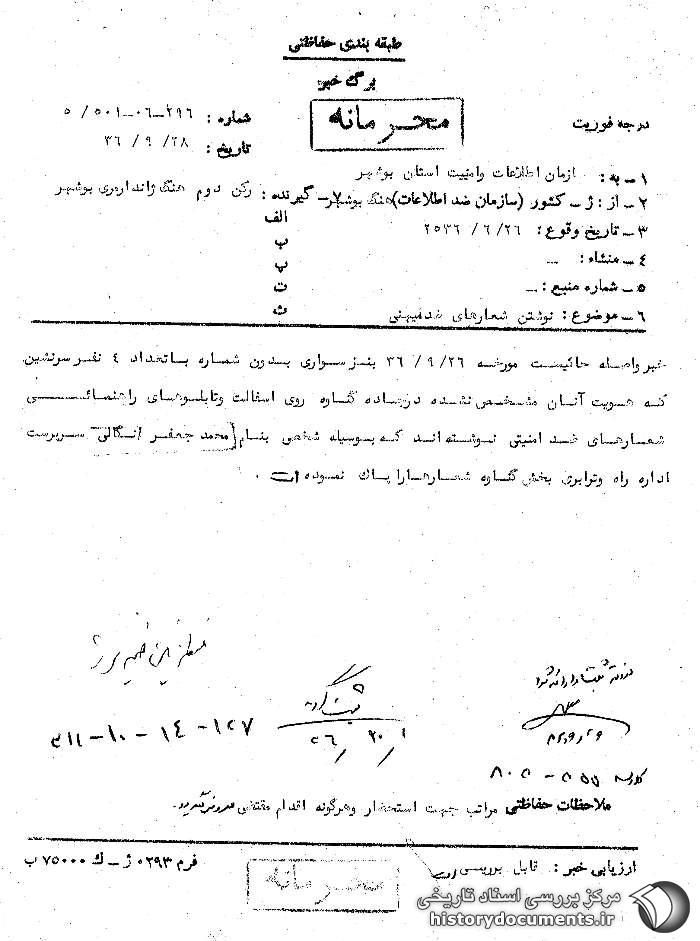 طبقه بندی حفاظتی
برگ خبر
محرمانه
درجه فوریت
شماره : ۲۹۶-۰۶-۵۰۱ / ۵
تاریخ : ۲۸/ ۹ / ۳۶
۱ - به : ازمان اطلاعات وامنیت استان بوشهر
۲ - از : ژ - کشور (سازمان ضد اطلاعات) هنگ بوشهر ۷- گیرنده : رکن دوم هنگ ژاندارمری بوشهر
۳ - تاریخ وقوع : ۲۶/ ۹/ ۲۵۳۶ الف
ب
۴ - منشاء : - پ
۵ - شماره منبع : - ت
۶ - موضوع : نوشتن شعارهای ضدمیهنی ث
خبر واصله حاکیست مورخه ۲۶/ ۹/ ۳۶ بنز سواری بدون شماره باتعداد ٤ نفر سرنشین
که هویت آنان مشخص نشده درجاده گناوه روی اسفالت وتابلوهای راهنمائی
شعارهای ضد امنیتی نوشته اند که بوسیله شخصی بنام محمد جعفر انگالی سرپرست
اداره راه وترابری بخش گناوه شعارهارا پاک نموده است .
ثبت گردد
۳۱۱-۱۰-۱۴-۱۲۷
ملاحظات حفاظتی مراتب جهت استحضار وهرگونه اقدام مقتضی
ارزیابی خبر : قابل بررسی است
فرم ۰۲۹۳ ژ - ک ۷۵۰۰۰ ب
محرمانه
مرکز بررسی اسناد تاریخی
historydocuments.ir